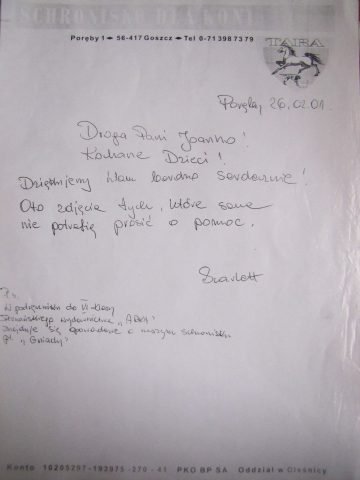 SCHRONISKO DLA KONI
Poręby 1 56-417 Goszcz Tel 0-71 398 73 79
TARA
Poręby, 26.02.01.
Droga Pani Joanno!
Kochane Dzieci!
Dziękujemy Wam bardzo serdecznie!
Oto zdjęcia tych, które same
nie potrafią prosić o pomoc.
Scarlett
P.S.
W podręczniku do VI klasy
wydawnictwa „
znajduje się opowiadanie o naszym schronisku
pt. „Gniady”
Konto 10205297-193975-270-41 PKO BP SA Oddział w Oleśnicy